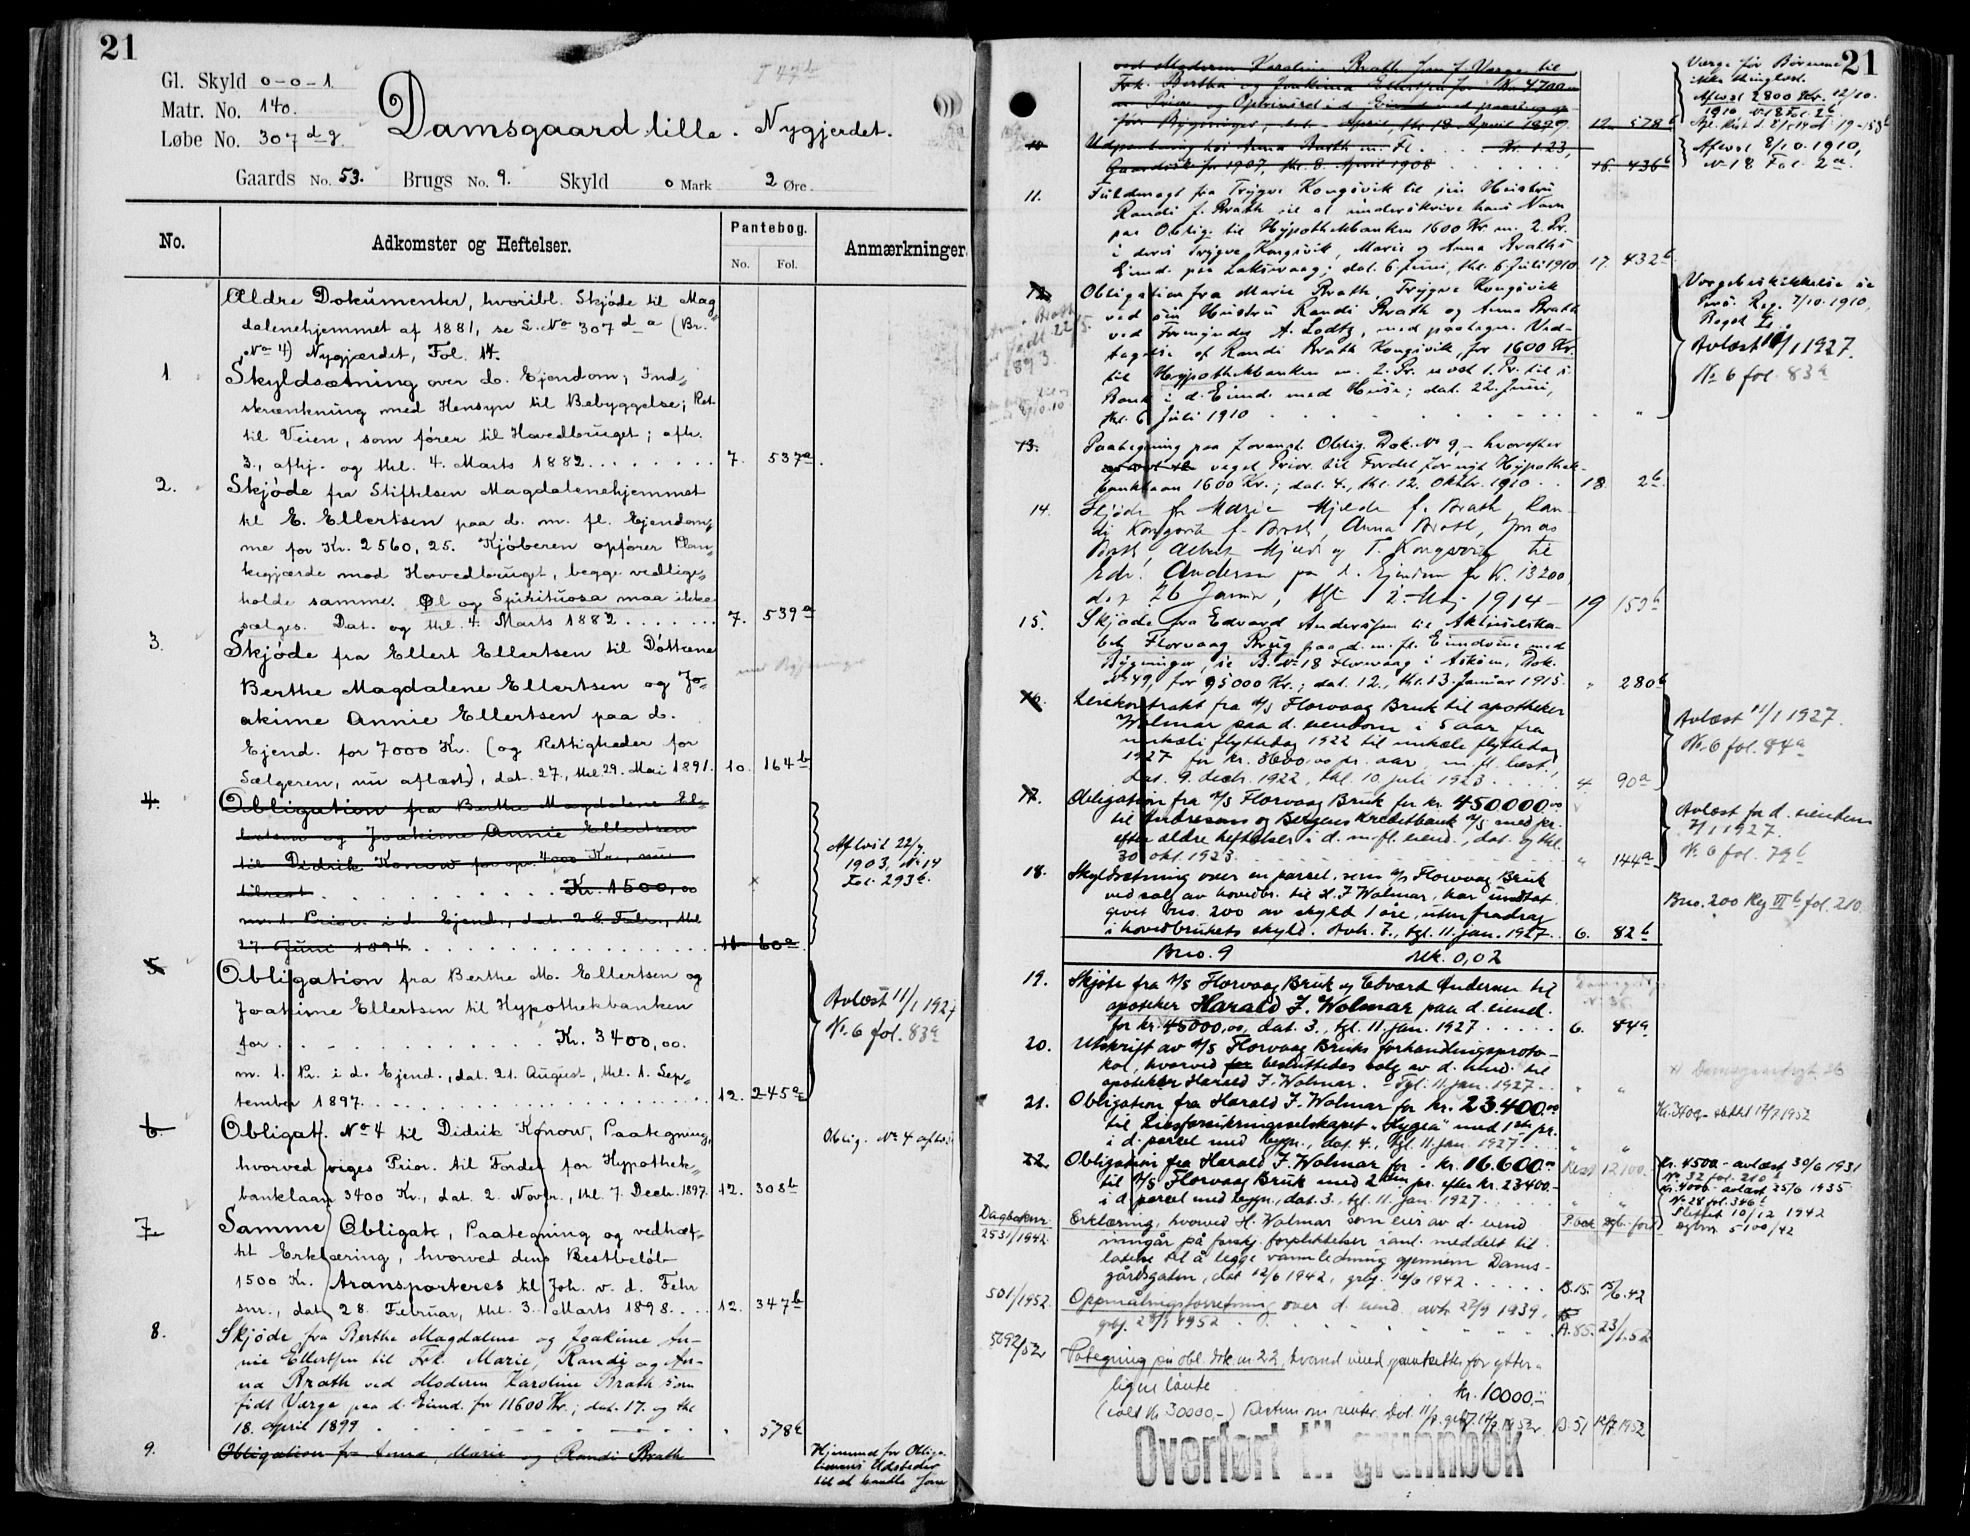 21
Gl. Skyld 0-0-1
Matr. No. 140.
Løbe No. 307 d g.
Damsgaard lille. Nygjerdet.
Gaards No. 53. Brugs No. 9. Skyld 0 Mark 2 Øre.
No. Adkomster og Heftelser. Pantebog. Anmærkninger.
No. Fol.
Ældre Dokumenter, hvoribl. Skjøde til Mag„
dalenehjemmet af 1881, se L. No 307 d a (Br.
No 4) Nygjærdet, Fol. 14.
1. Skyldsætning over d. Ejendom; Ind„
skrænkning med Hensyn til Bebyggelse; Ret
til Veien, som fører til Hovedbruget; afh.
3., afhj. og thl. 4. Marts 1882. 7. 537a.
2. Skjøde fra Stiftelsen Magdalenehjemmet
til E. Ellertsen paa d. m. fl. Ejendom„
me for Kr. 2560,25. Kjøberen opfører Plan„
kegjærde mod Hovedbruget, begge vedlige„
holde samme. Øl og Spirituosa maa ikke
sælges. Dat. og thl. 4. Marts 1882 7. 539a
3. Skjøde fra Ellert Ellertsen til Døttrene
Berthe Magdalene Ellertsen og Jo„
akime Annie Ellertsen paa d.
Ejend. for 7000 Kr. (og Rettigheder for
Sælgeren, nu aflæst), dat. 27., thl. 29. Mai 1891. 10. 164b
4. Obligation fra Berthe Magdalene El„
lertsen og Joakime Annie Ellertsen
til Didrik Konow for opr. 4000 Kr., nu
tilrest Kr. 1500,00
m. 1. Prior. i d. Ejend., dat. 28. Febr., thl.
27. Juni 1894. 11. 60a
Aflöst 22/7
1903, No 14
Fol. 293b.
5. Obligation fra Berthe M. Ellertsen og
Joakime Ellertsen til Hypothekbanken
for Kr. 3400,00.
m. 1. Pr. i d. Ejend., dat. 21. August, thl. 1. Sep„
tember 1897. 12. 245a
Avlæst 11/1 1927
No. 6 fol. 83a
6. Obligat. No 4 til Didrik Konow, Paategning,
hvorved viges Prior. til Fordel for Hypothek„
banklaan 3400 Kr., dat. 2. Novbr., thl. 7. Decbr. 1897. 12. 308b
Oblig. No 4 aflöst
7. Samme Obligats, Paategning og vedhæf„
tet Erklæring, hvorved dens Restbeløb
1500 Kr. transporteres til Joh. v. d. Fehr
snr., dat. 28. Februar, thl. 3. Marts 1898. 12. 347b
8. Skjöde fra Berthe Magdalene og Joakime An-
nie Ellertsen til Frk. Marie, Randi og An-
na Brath ved Moderen Karoline Brath som
födt Værge paa d. Eiend. for 11600 Kr.; dat. 17. og thl.
18. April 1899 " 578b
9. Obligation fra Anna, Marie og Randi Brath
Hjemmel for Obliga-
tionens Udsteder
til at handle som
21
ved Moderen Karoline Brath som f. Værge til
Frk. Bertha og Joakima Ellertsen for Kr. 4700
12. 578b
Værge for Börnene
ikke thinglæst.
Aflæst 2800 Kr. 12/10.
1910 No 18 Fol. 2b.
10. Udpantning hos Anna Brath m. Fl. Kr. 1.23,
for 1907, thl. 8. April 1908 16. 436b
Aflæst 8/10. 1910,
No 18 Fol. 2a.
11. Fuldmagt fra Trygve Kongsvik til sin Hustru
Randi f. Brath til at underskrive hans Navn
paa Oblig. til Hypothekbanken 1600 Kr. m. 2. Pr.
i deres Trygve Kongsvik, Marie og Anna Braths
Eiend. paa Laksevaag; dat. 6. Juni, thl. 6. Juli 1910 17. 432b
12. Obligation fra Marie Brath, Trygve Kongsvik
ved sin Hustru Randi Brath og Anna Brath
ved Formynder A. Lodtz, med paategn. Ved-
tagelse af Randi Brath Kongsvik, for 1600 Kr.
til Hypothekbanken m. 2. Pr.
i d. Eiend. med Huse; dat. 22. Juni,
thl. 6. Juli 1910 " "
Værgebeskikkelse se
Pers. Reg. 7/10. 1910,
Avlæst 11/1 1927.
No 6 fol. 83a
13. Paategning paa foranst. Oblig. Dok. No 9, hvorefter
viget Prior. til Fordel for nyt Hypothek-
banklaan 1600 Kr.; dat. 4., thl. 12. Oktbr. 1910 18. 2b.
14. Skjöde fra Marie Mjelde f. Brath, Ran-
di Kongsvik f. Brath, Anna Brath, Jonas
Brath, Albert Mjelde og T. Kongsvig til
Edv. Andersen paa d. Ejendom for Kr. 13200,
dat. 26 Januar, thl. 2. Mai 1914 19 153b
15. Skjöde fra Edvard Andersen til Aktieselska-
bet Florvaag Brug paa d. m. fl. Eiendome med
Bygninger, se B. No 18 Florvaag i Asköen, Dok.
No 49, for 95000 Kr.; dat. 12., thl. 13. Januar 1915. " 280b
16. Leiekontrakt fra A/S Florvaag Bruk til apotheker
Wolmar paa d. eiendom i 5 aar fra
flyttedag 1922 til flyttedag
1927 for kr. 3600.00 pr. aar, m. fl. best.,
dat. 9. decbr. 1922, thl. 10. juli 1923 4. 90a
Avlæst 11/1 1927.
No. 6 fol. 84a
17. Obligation fra A/S Florvaag Bruk for kr. 450000.00
til Andresens og Bergens Kreditbank A/S med pr.
efter ældre heftelser i d. m. fl. eiend., dat. og thl.
30. okt. 1923 " 144a
Avlæst for d. eiendom
1927.
No 6 fol. 79b
18. Skyldsætning over en parsel, som A/S Florvaag Bruk
ved salg av hovedbr. til H. J. Wolmar, har undtat
givet bno. 200 av skyld 1 øre, uten fradrag
i hovedbrukets skyld. Avh. 7., tgl. 11. jan. 1927. 6. 82b
Bno. 200 Reg VI b fol. 210.
Bno. 9 Mk. 0,02
19. Skjøte fra A/S Florvaag Bruk og Edvard Andersen til
apoteker Harald J. Wolmar paa d. eiend.
for kr. 45000,00, dat. 3., tgl. 11. jan. 1927 6. 84a
20. Utskrift av A/S Florvaag Bruks forhandlingsproto-
kol, hvorved besluttedes salg av d. eiend. til
apoteker Harald J. Wolmar. Tgl. 11. jan. 1927 " "
21. Obligation fra Harald J. Wolmar for kr. 23.400.00
til Livsforsikringsselskapet „Hygea" med 1ste pr.
i d. parsel med bygn., dat. 4., tgl. 11. jan. 1927 " "
Kr. 23400.- slettet 12/7 1952
22. Obligation fra Harald J. Wolmar for kr. 16.600.00
til A/S Florvaag Bruk med 2den pr. efter kr. 23400.-
i d. parsel med bygn., dat. 3., tgl. 11. jan. 1927 " "
Rest 12100.
Kr. 4500 - avlæst 30/6 1931
No. 32 fol. 210
Kr. 4000 - avlæst 25/6 1935
No 28 fol. 346b
Slettet 10/12 1942
dgbnr. 5100/42
Dagboknr.
2531/1942. Erklæring, hvorved H. Wolmar som eier av d. eiend
inngår på forskj. forpliktelser i anl. meddelt til-
latelse til å legge vannledning gjennem Dams-
gårdsgaten, dat 12/6 1942, grbg. 15/6 1942 B.15. 15/6.42
501/1952. Oppmålingsforretning over d. eiend. avh. 27/9 1939,
grbj. 23/1 1952 A.85. 23/1.52
5092/52 Påtegning på obl. dok. nr. 22, hvorved eiend. pantsettes for ytter-
ligere lånte kr. 10000.-
(ialt kr 30000,-) Bestem. om renter. Dat. 11/7, grbg. 12/7 1952 B.51 12/7 1952
Overført til grunnbok